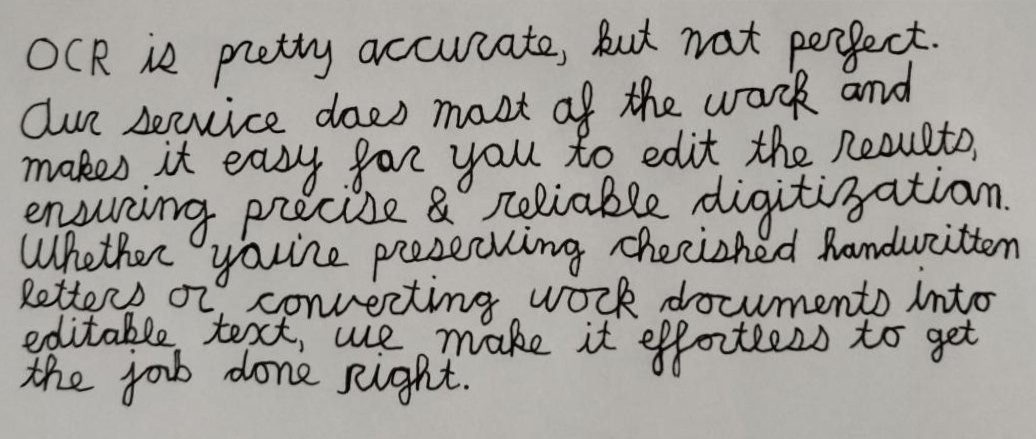 OCR is pretty accurate, but not perfect.
Our service does most of the work and
makes it easy for you to edit the results,
ensuring precise & reliable digitization.
Whether you're preserving cherished handwritten
letters or converting work documents into
editable text, we make it effortless to get
the job done right.